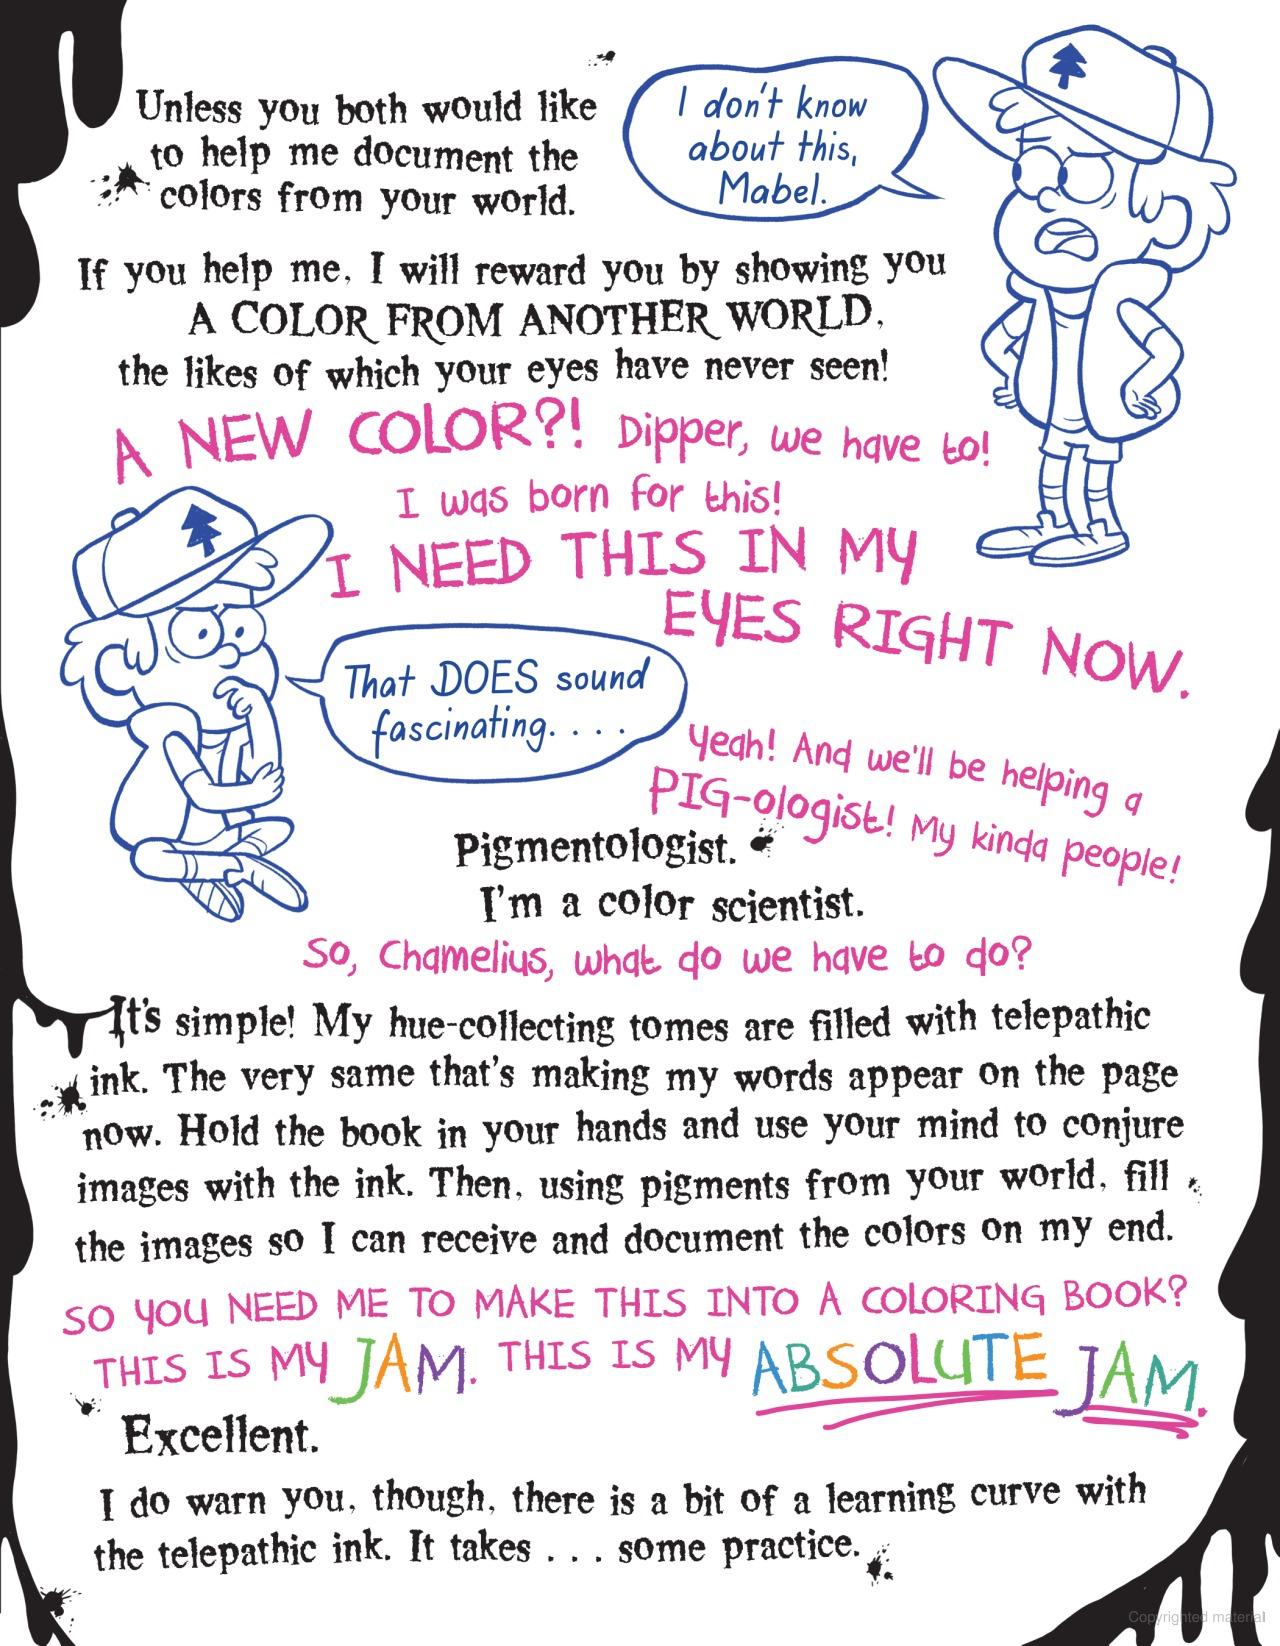 Unless you both would like
to help me document the
colors from your world.
I don't know
about this,
Mabel.
If you help me, I will reward you by showing you
A COLOR FROM ANOTHER WORLD,
the likes of which your eyes have never seen!
A NEW COLOR?! Dipper, we have to!
I was born for this!
I NEED THIS IN MY
EYES RIGHT NOW.
That DOES sound
fascinating. . . .
Yeah! And we'll be helping a
PIG-ologist! My kinda people!
Pigmentologist.
I'm a color scientist.
So, Chamelius, what do we have to do?
It's simple! My hue-collecting tomes are filled with telepathic
ink. The very same that's making my words appear on the page
now. Hold the book in your hands and use your mind to conjure
images with the ink. Then, using pigments from your world, fill
the images so I can receive and document the colors on my end.
SO YOU NEED ME TO MAKE THIS INTO A COLORING BOOK?
THIS IS MY JAM. THIS IS MY ABSOLUTE JAM.
Excellent.
I do warn you, though, there is a bit of a learning curve with
the telepathic ink. It takes . . . some practice.
Copyrighted material